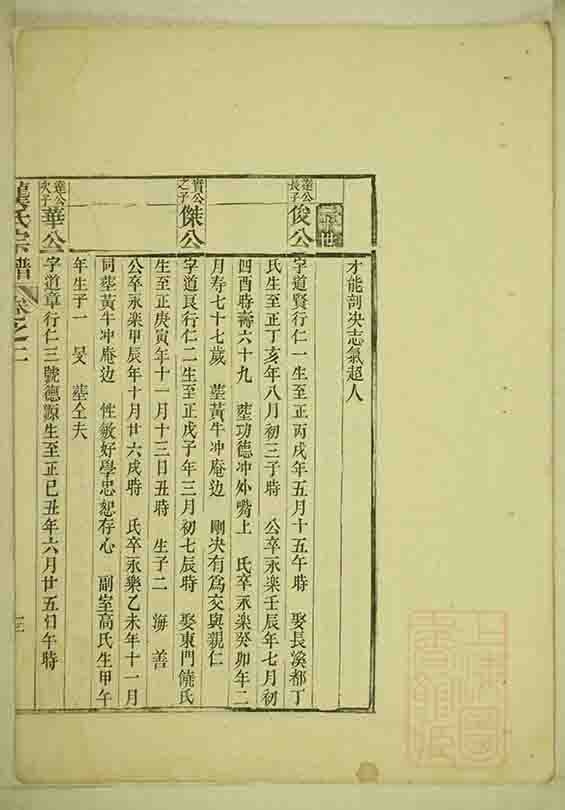 才能剖决志氣超人
世
達公長子
俊公
字道賢行仁一生至正丙戌年五月十五午時 娶長溪都丁
氏生至正丁亥年八月初三子時 公卒永楽壬辰年七月初
四酉時壽六十九 塟功德冲外嘴上 氏卒永楽癸卯年二
月寿七十七歲 塟黃牛冲庵边 剛决有為交與親仁
寳公之子
傑公
字道良行仁二生至正戊子年三月初七辰時 娶東門饒氏
生至正庚寅年十一月十三日丑時 生子二 海 善
公卒永楽甲辰年十月廿六戌時 氏卒永樂乙未年十一月
同塟黃牛冲庵边 性敏好學忠恕存心 副室高氏生甲午
年生子一 旻 塟仝夫
達公次子
華公
字道章行仁三號德源生至正己丑年六月廿五日午時
龔氏宗譜
卷之二
上海圖書館藏